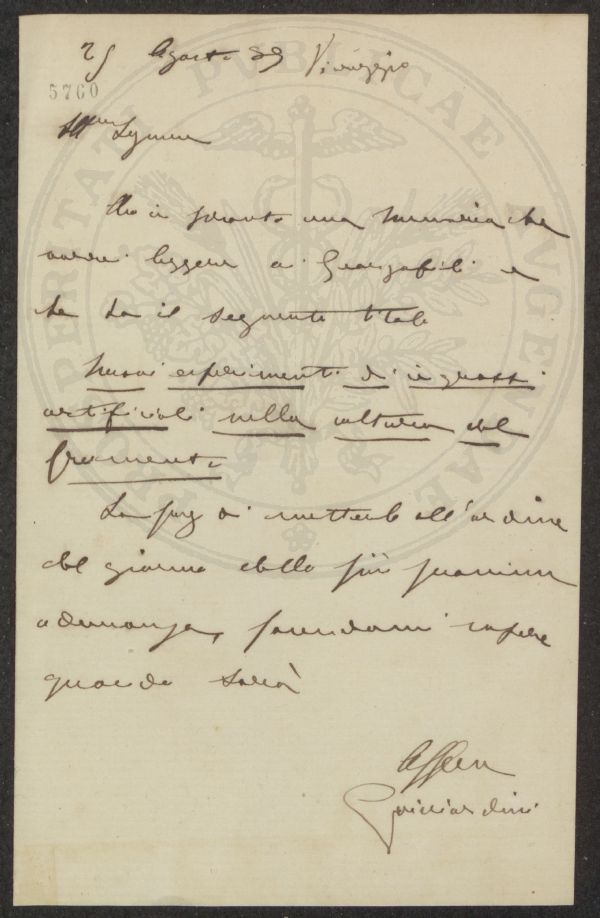 25 Agosto 89 Viareggio
5760
Ill.mo Signore
Ho in pronto una memoria che
vorrei leggere ai Georgofili e
che ha il seguente titolo
Nuovi esperimenti di ingrassi
artificiali nella cultura del
frumento
La prego di metterlo all'ordine
del giorno della più prossima
adunanza, facendomi sapere
quando sarà
Guicciardini
PROSPERITATI PVBLICAE AVGENDAE